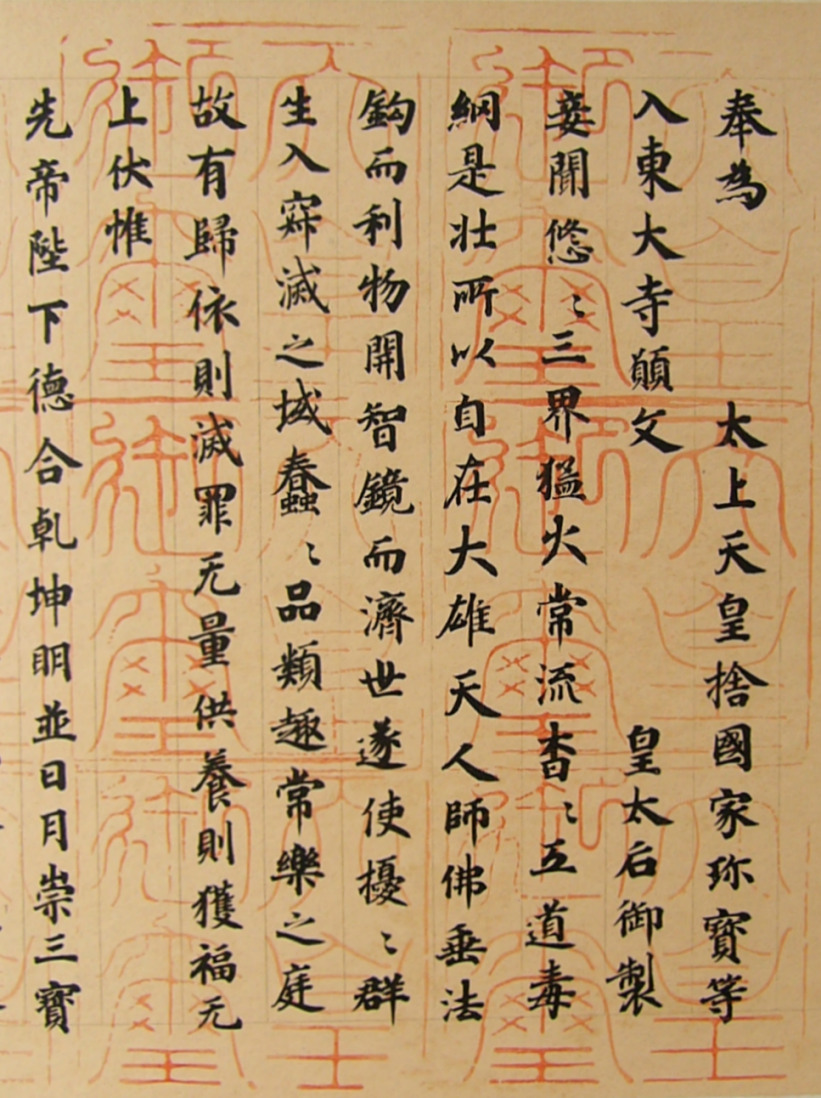 奉為　太上天皇捨國家珎寶等
入東大寺願文　皇太后御製
妾聞悠〻三界猛火常流杳〻五道毒
網是壮所以自在大雄天人師佛垂法
鈎而利物開智鏡而濟世遂使擾〻群
生入寂滅之域蠢〻品類趣常樂之庭
故有歸依則滅罪无量供養則獲福无
上伏惟
先帝陛下徳合乹坤明並日月崇三寶